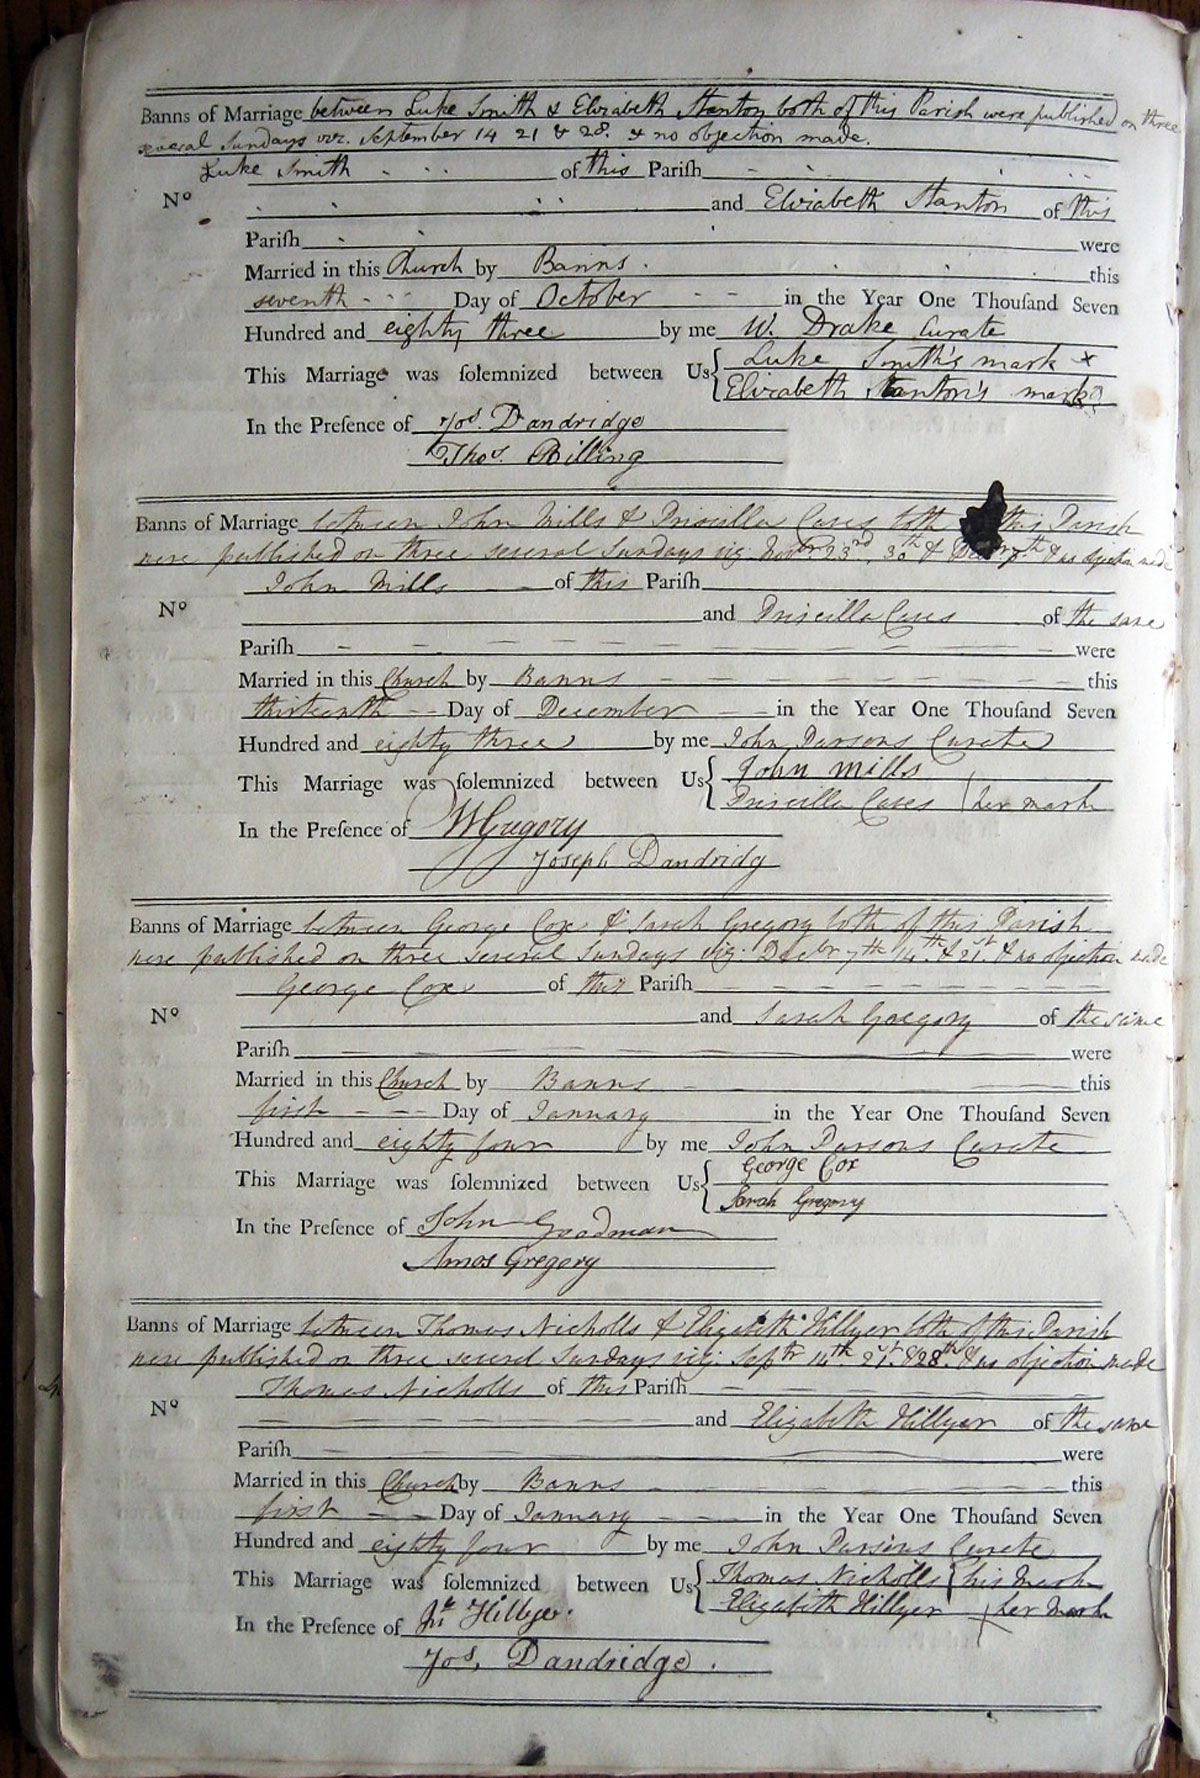 Banns of Marriage between Luke Smith & Elizabeth Stanton both of this Parish were published on three
several Sundays viz. September 14 21 & 28. & no objection made.
Luke Smith of this Parish
No and Elizabeth Stanton of this
Pariſh were
Married in this Church by Banns. this
seventh Day of October in the Year One Thouſand Seven
Hundred and eighty three by me W. Drake Curate
This Marriage was ſolemnized between Us { Luke Smith's mark x
Elizabeth Stanton's mark
In the Preſence of Jos. Dandridge
Thos. Billing
Banns of Marriage between John Mills & Priscilla Cases both this Parish
were published on three several Sundays viz. Novbr. 23rd, 30th & 7th & no objection made
John Mills of this Pariſh
No and Priscilla Cases of the same
Pariſh were
Married in this Church by Banns this
thirteenth Day of December in the Year One Thouſand Seven
Hundred and eighty three by me John Parsons Curate
This Marriage was ſolemnized between Us { John Mills
Priscilla Cases her mark
In the Preſence of W Gregory
Joseph Dandridg
Banns of Marriage between George Cox & Sarah Gregory both of this Parish
were published on three several Sundays viz. Decbr 7th 14th & 21st & no objection made
George Cox of this Pariſh
No and Sarah Gregory of the same
Pariſh were
Married in this Church by Banns this
first Day of January in the Year One Thouſand Seven
Hundred and eighty four by me John Parsons Curate
This Marriage was ſolemnized between Us { George Cox
Sarah Gregory
In the Preſence of John Goodman
Amos Gregory
Banns of Marriage between Thomas Nicholls & Elizabeth Hillyer both of this Parish
were published on three several Sundays viz. Septbr 14th 21st & 28th & no objection made
Thomas Nicholls of this Pariſh
No and Elizabeth Hillyer of the same
Pariſh were
Married in this Church by Banns this
first Day of January in the Year One Thouſand Seven
Hundred and eighty four by me John Parsons Curate
This Marriage was ſolemnized between Us { Thomas Nicholls his mark
Elizabeth Hillyer her mark
In the Preſence of Hillyer.
Jos. Dandridge.